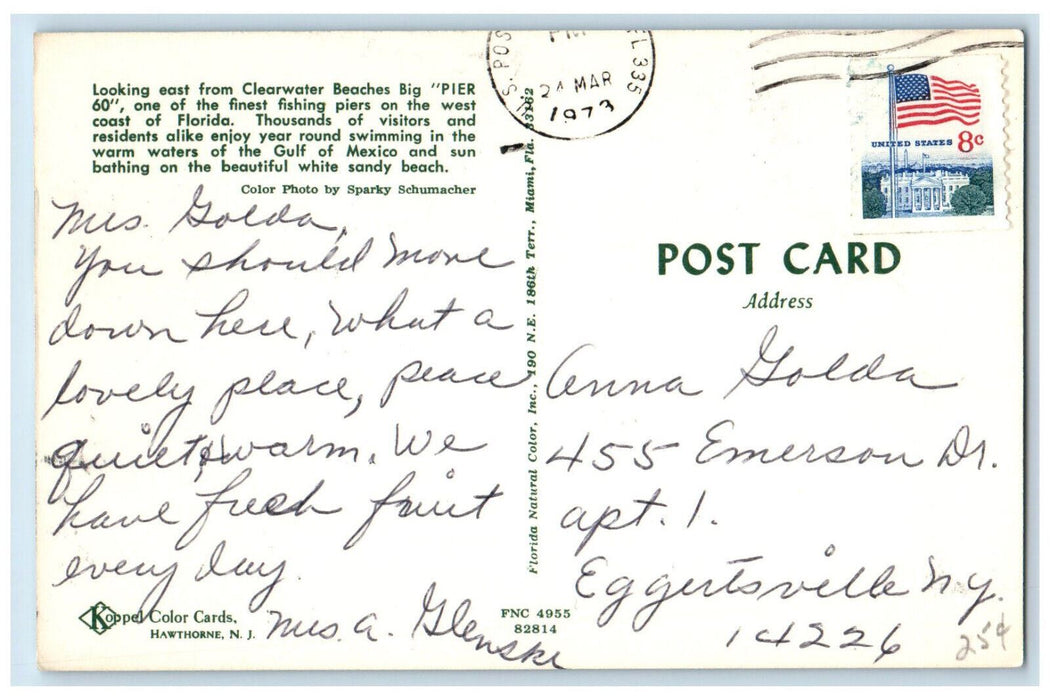 Looking east from Clearwater Beaches Big "PIER
60", one of the finest fishing piers on the west
coast of Florida. Thousands of visitors and
residents alike enjoy year round swimming in the
warm waters of the Gulf of Mexico and sun
bathing on the beautiful white sandy beach.
Color Photo by Sparky Schumacher
Mrs. Golda,
You should move
down here, What a
lovely place, peace
quiet & warm. We
have fresh fruit
every day.
Mrs. A. Glenski
Koppel Color Cards,
HAWTHORNE, N. J.
Florida Natural Color, Inc., 190 N.E. 186th Terr., Miami, Fla. 33162
FNC 4955
82814
U.S. POS
PM
24 MAR
1973
FL 335
UNITED STATES 8c
POST CARD
Address
Anna Golda
455 Emerson Dr.
apt. 1.
Eggertsville N.Y.
14226
25¢